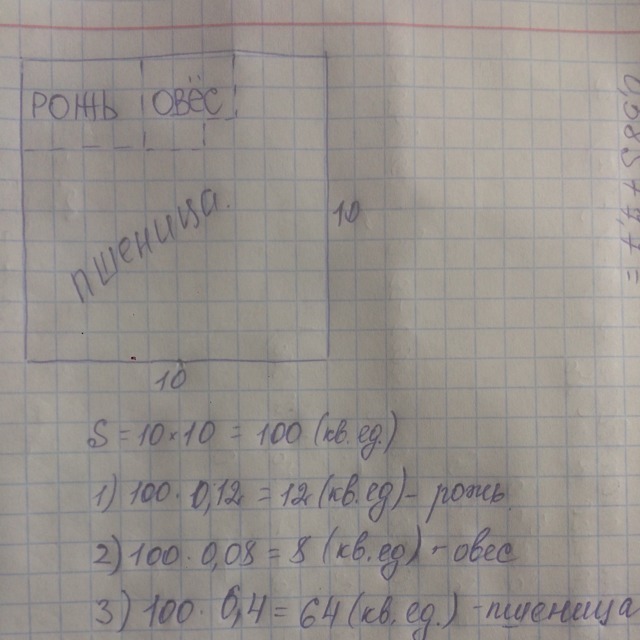 РОЖЬ ОВЁС
пшеница.
10
10
S = 10×10 = 100 (кв.ед.)
1) 100 · 0,12 = 12 (кв.ед) - рожь
2) 100 · 0,08 = 8 (кв.ед) - овес
3) 100 · 0,4 = 64 (кв.ед.) - пшеница